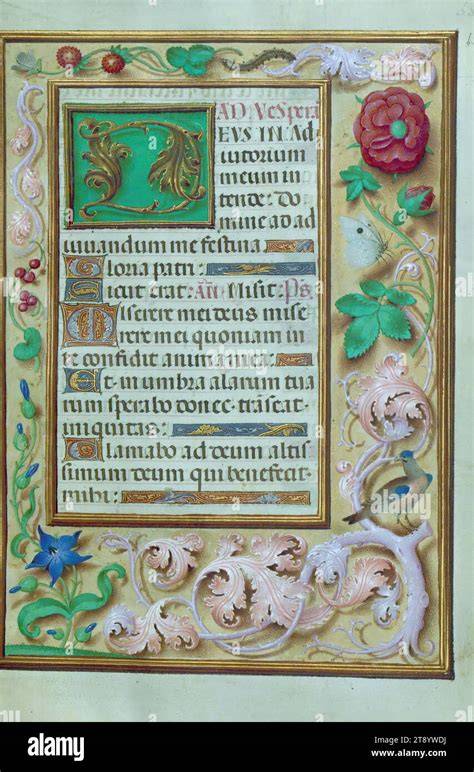 AD VESPERA
DEUS IN AD
iutorium
meum in
tende: Do
mine ad ad
iuuandum me festina
Gloria patri:
Sicut erat. Añ. Misit. Ps.
Miserere mei deus mise
rere mei quoniam in
te confidit anima mea:
Et in umbra alarum tua
rum sperabo donec trãseat
iniquitas:
Clamabo ad deum altis
simum deum qui benefecit
mihi:
alamy
Image ID:
www.alamy.com